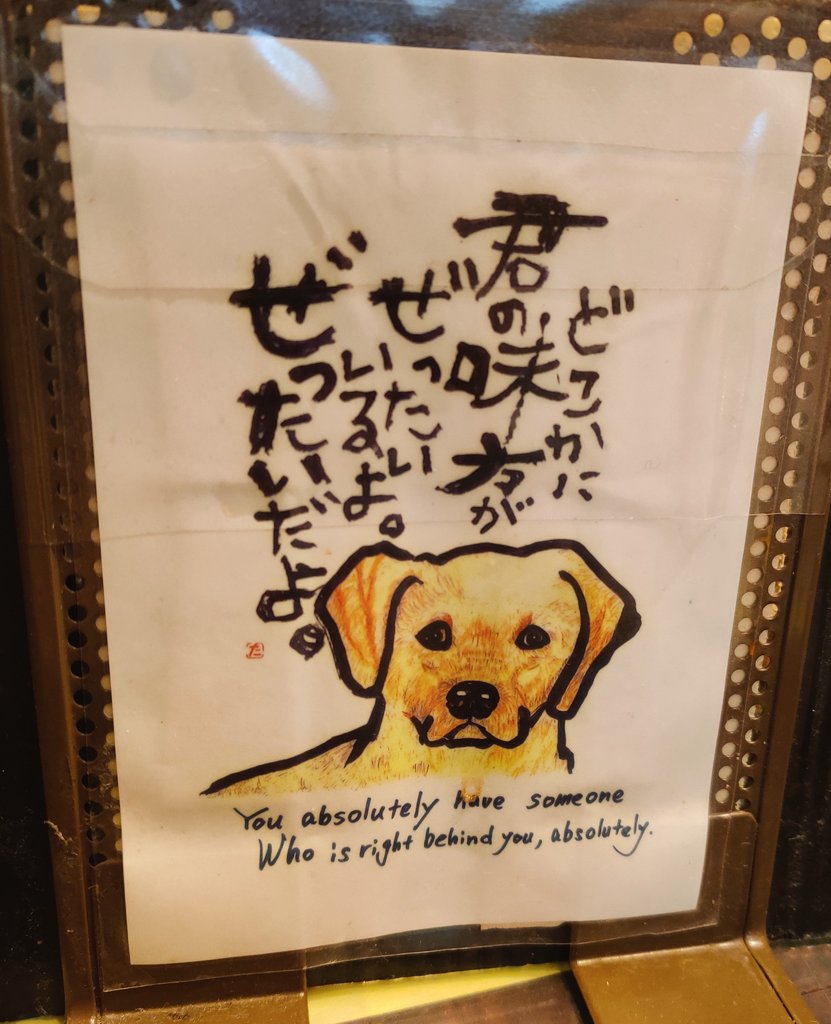 どこかに
君の味方が
ぜったい
いるよ。
ぜったいだよ。
た
You absolutely have someone
Who is right behind you, absolutely.